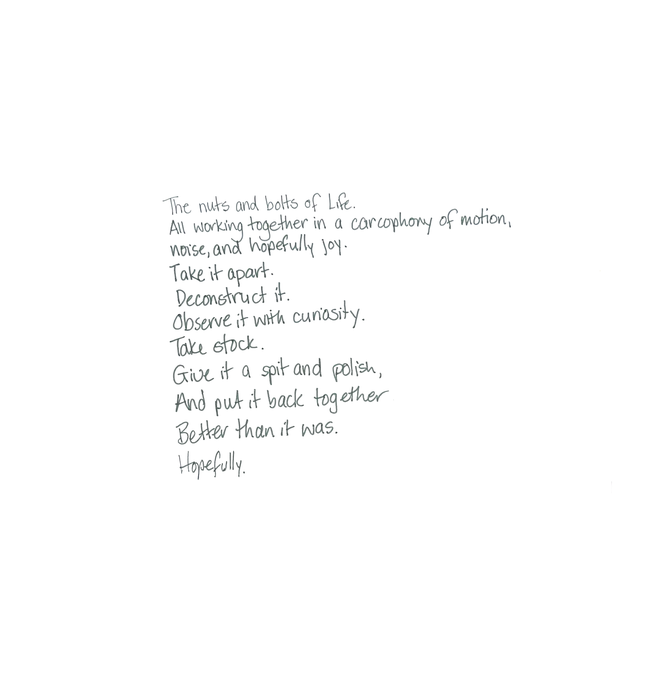 The nuts and bolts of Life.
All working together in a carcophony of motion,
noise, and hopefully joy.
Take it apart.
Deconstruct it.
Observe it with curiosity.
Take stock.
Give it a spit and polish,
And put it back together
Better than it was.
Hopefully.